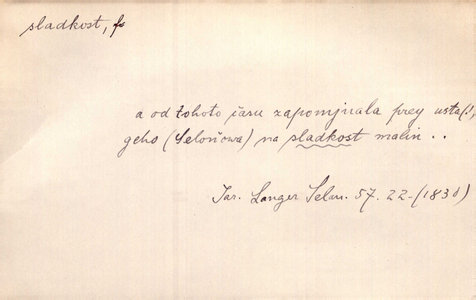 sladkost, f.
a od tohoto času zapomjnala prey usta(!)
geho (Seloňowa) na sladkost malin ..
Jar. Langer Selan. 57. 22.-(1830)